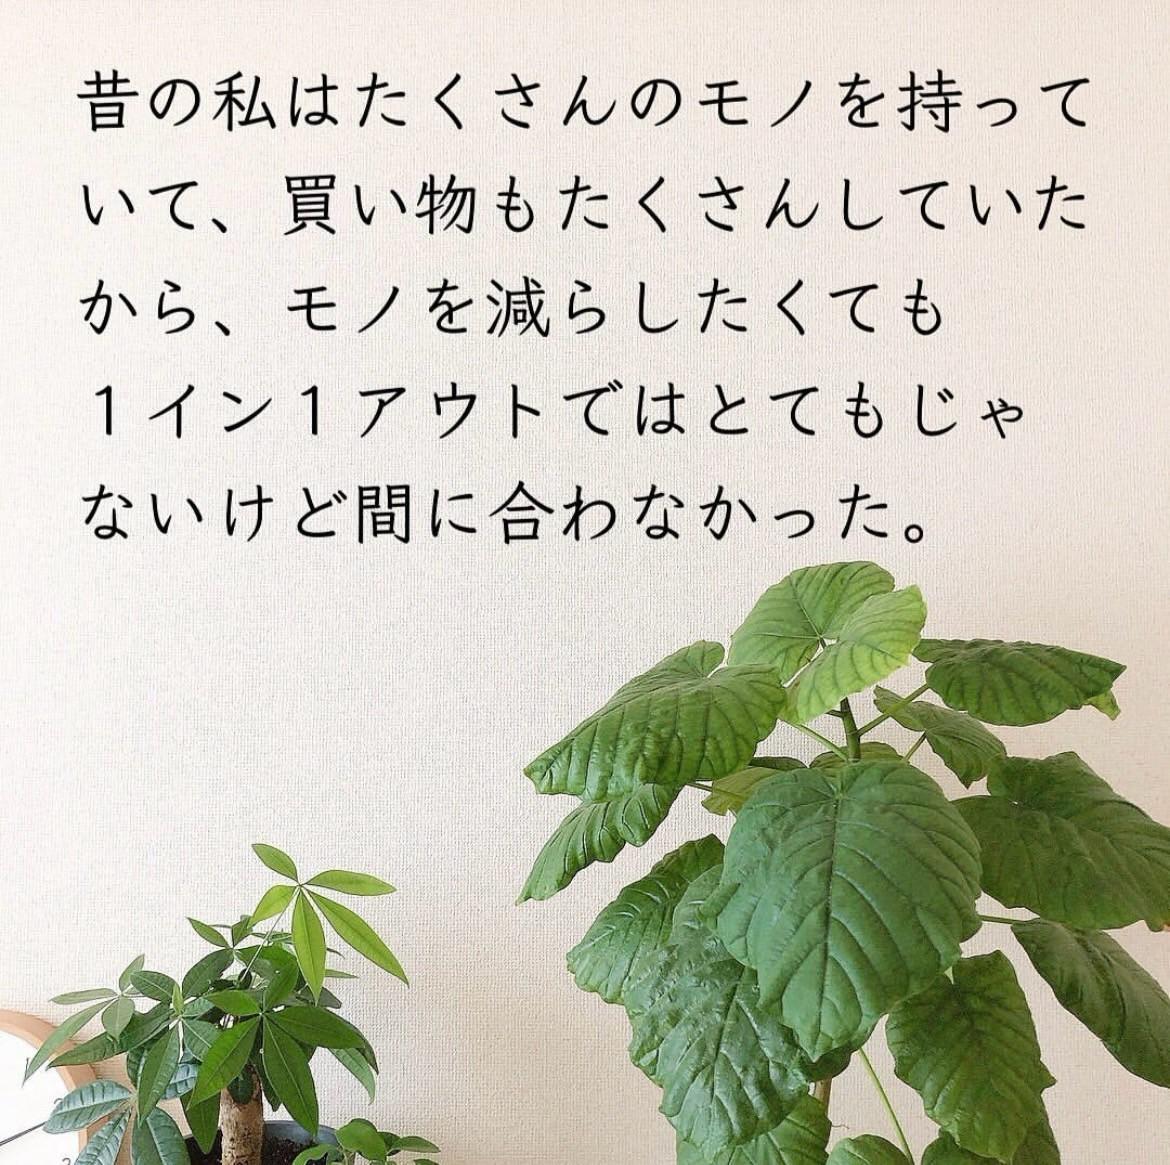 昔の私はたくさんのモノを持って
いて、買い物もたくさんしていた
から、モノを減らしたくても
１イン１アウトではとてもじゃ
ないけど間に合わなかった。
2